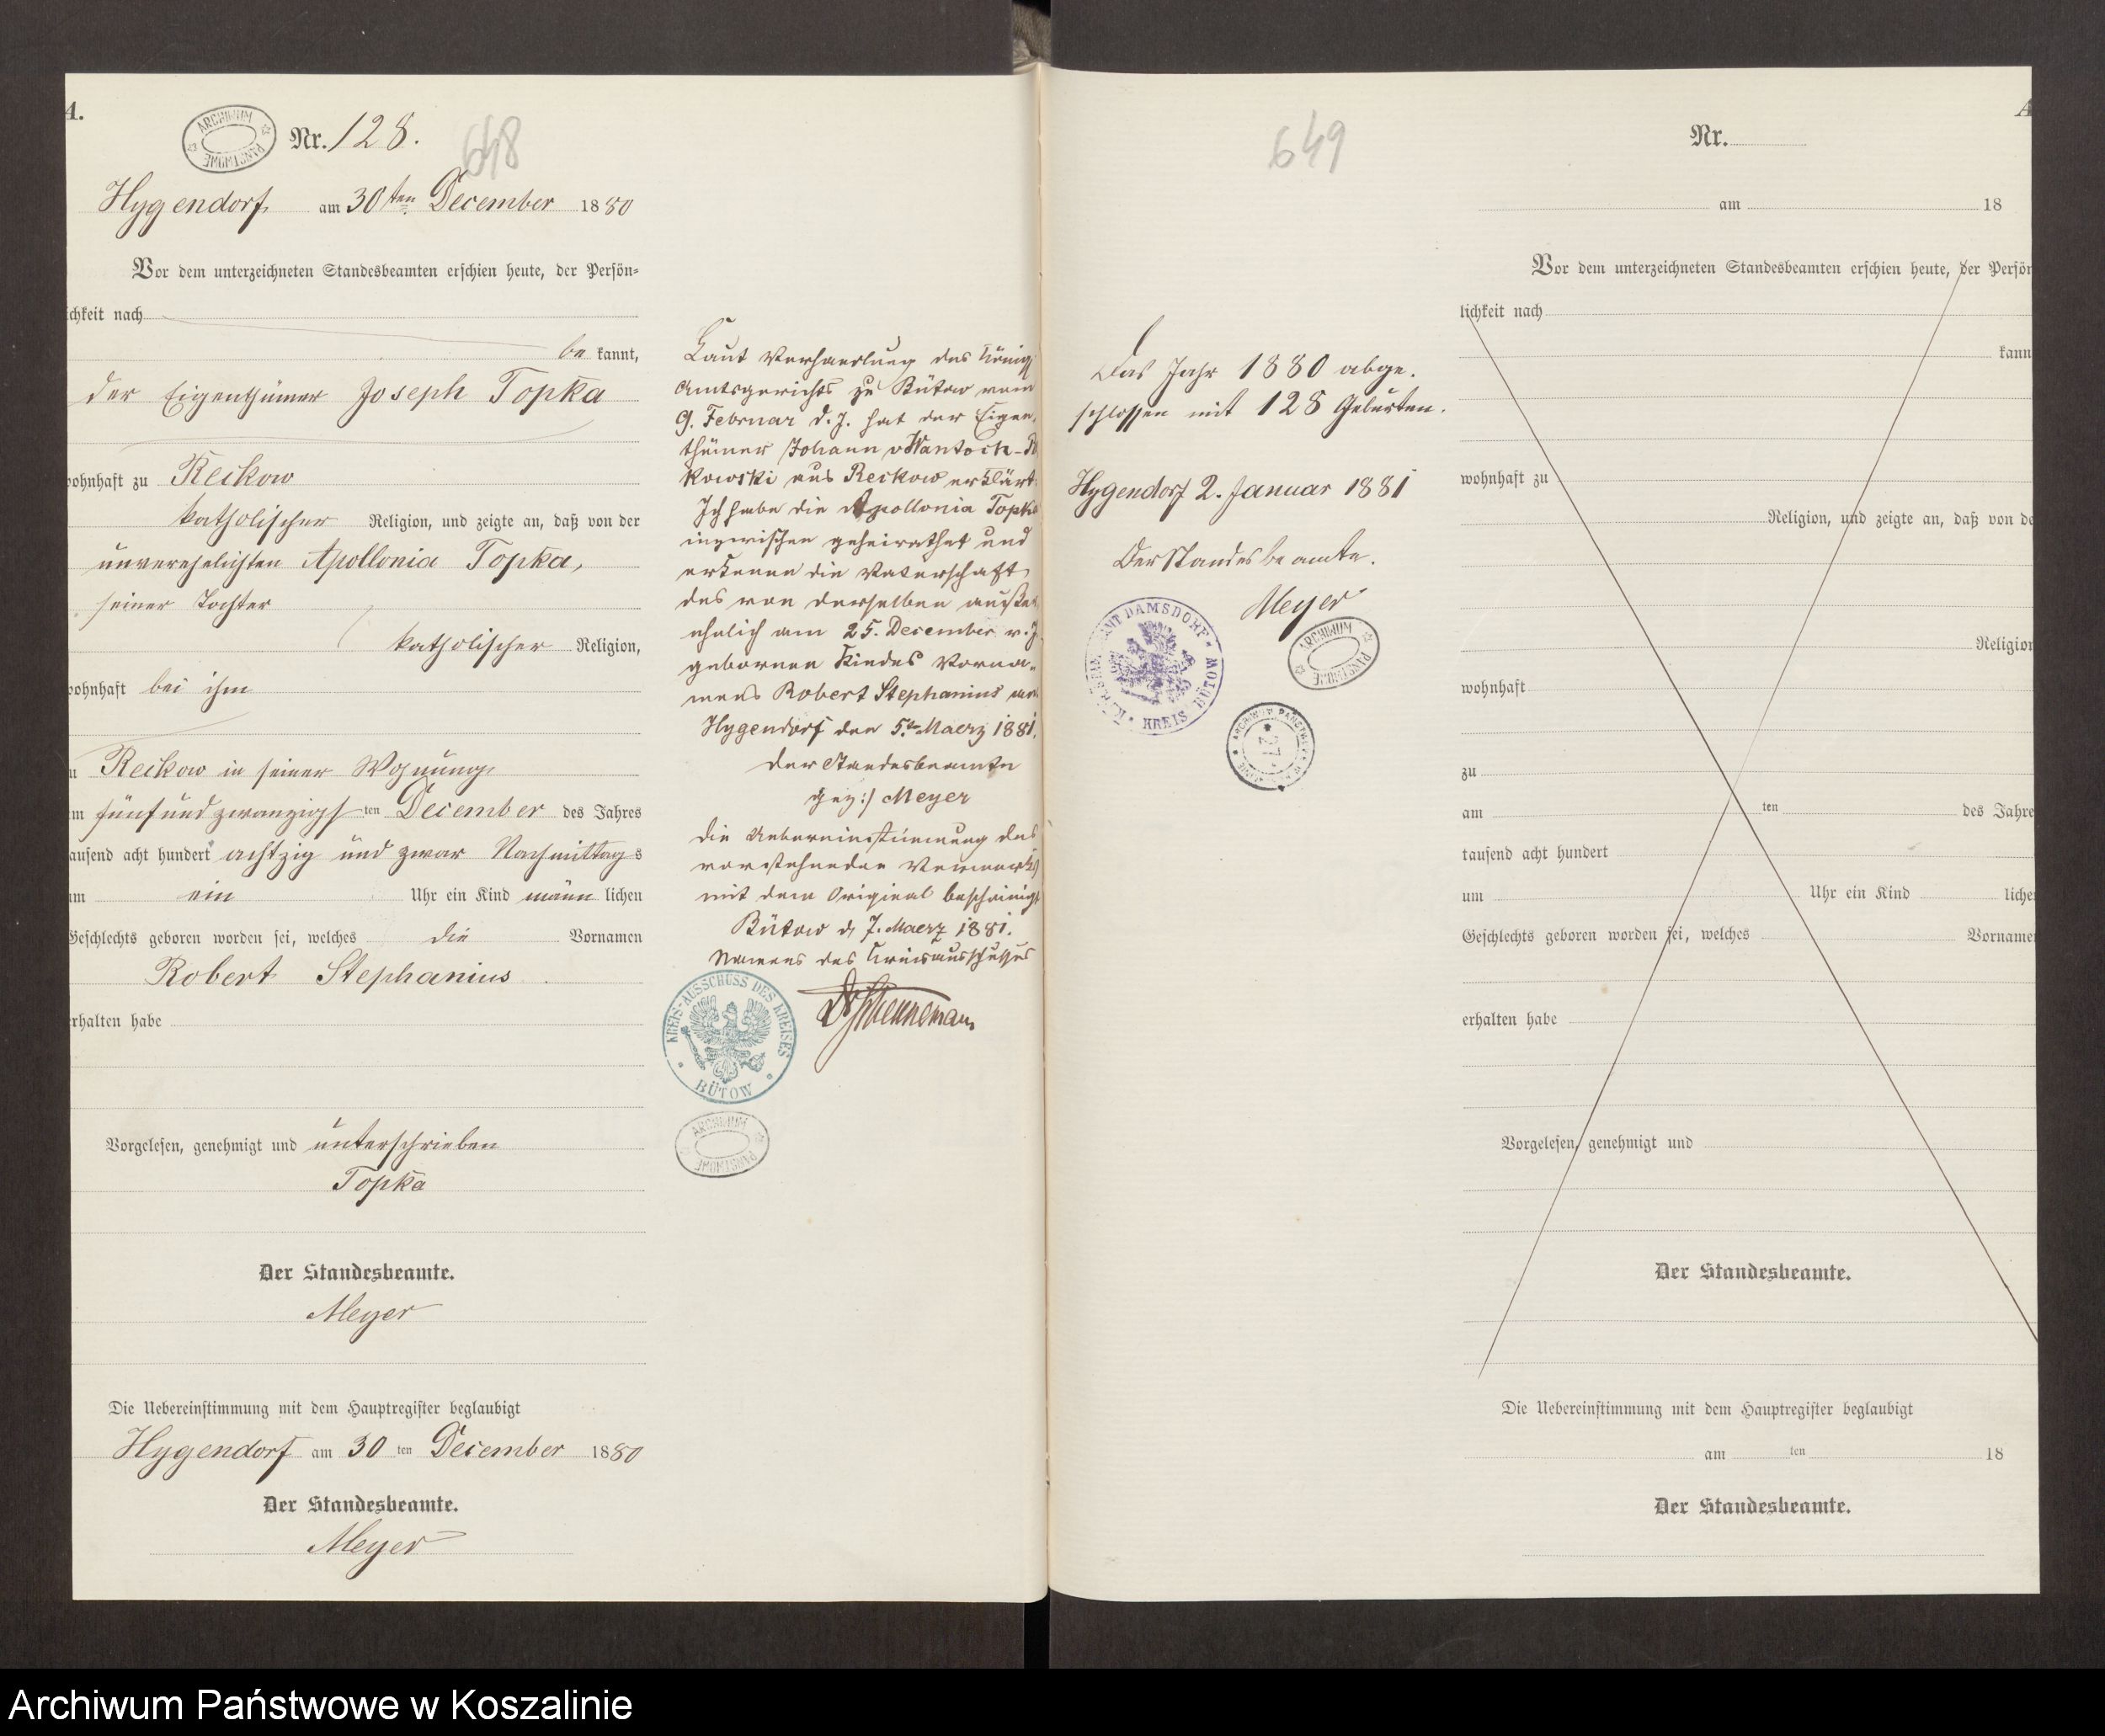 A.
ARCHIWUM PAŃSTWOWE
Nr. 128.
648
Hygendorf am 30ten December 1880
Vor dem unterzeichneten Standesbeamten erschien heute, der Persön-
ichkeit nach
be kannt,
der Eigenthümer Joseph Topka
wohnhaft zu Reckow
katholischer Religion, und zeigte an, daß von der
unverehelichten Apollonia Topka,
seiner Tochter
katholischer Religion,
wohnhaft bei ihm
u Reckow in seiner Wohnung
m fünfundzwanzigsten December des Jahres
ausend acht hundert achtzig und zwar Nachmittags
um ein Uhr ein Kind männlichen
Geschlechts geboren worden sei, welches die Vornamen
Robert Stephanius
erhalten habe
Vorgelesen, genehmigt und unterschrieben
Topka
Der Standesbeamte.
Meyer
Die Uebereinstimmung mit dem Hauptregister beglaubigt
Hygendorf am 30 ten December 1880
Der Standesbeamte.
Meyer
Laut Verhandlung des Königl
Amtsgerichts zu Bütow vom
9. Februar d. J. hat der Eigen-
thümer Johann v Wantoch-
kowski aus Reckow erklärt:
Ich habe die Apollonia Topka
inzwischen geheirathet und
erkenne die Vaterschaft
des von derselben außer
ehelich am 25. December v. J.
gebornen Kindes Vorna-
mens Robert Stephanius an.
Hygendorf den 5ten Maerz 1881.
Der Standesbeamte
gez:/ Meyer
Die Uebereinstimmung des
vorstehenden Vermerks
mit dem Original bescheinigt
Bütow d. 7. Maerz 1881.
Namens des Kreisausschusses
KREIS-AUSSCHUSS DES KREISES BÜTOW
ARCHIWUM PAŃSTWOWE
649
Das Jahr 1880 abge-
schlossen mit 128 Geburten.
Hygendorf 2. Januar 1881
Der Standesbeamte.
Meyer
AMT DAMSDORF KREIS BÜTOW
ARCHIWUM PAŃSTWOWE
ARCHIWUM PAŃSTWOWE
27
A
Nr.
am 18
Vor dem unterzeichneten Standesbeamten erschien heute, der Persön
lichkeit nach
kann
wohnhaft zu
Religion, und zeigte an, daß von de
Religion
wohnhaft
zu
am ten des Jahre
tausend acht hundert
um Uhr ein Kind liche
Geschlechts geboren worden sei, welches Vorname
erhalten habe
Vorgelesen, genehmigt und
Der Standesbeamte.
Die Uebereinstimmung mit dem Hauptregister beglaubigt
am ten 18
Der Standesbeamte.
Archiwum Państwowe w Koszalinie